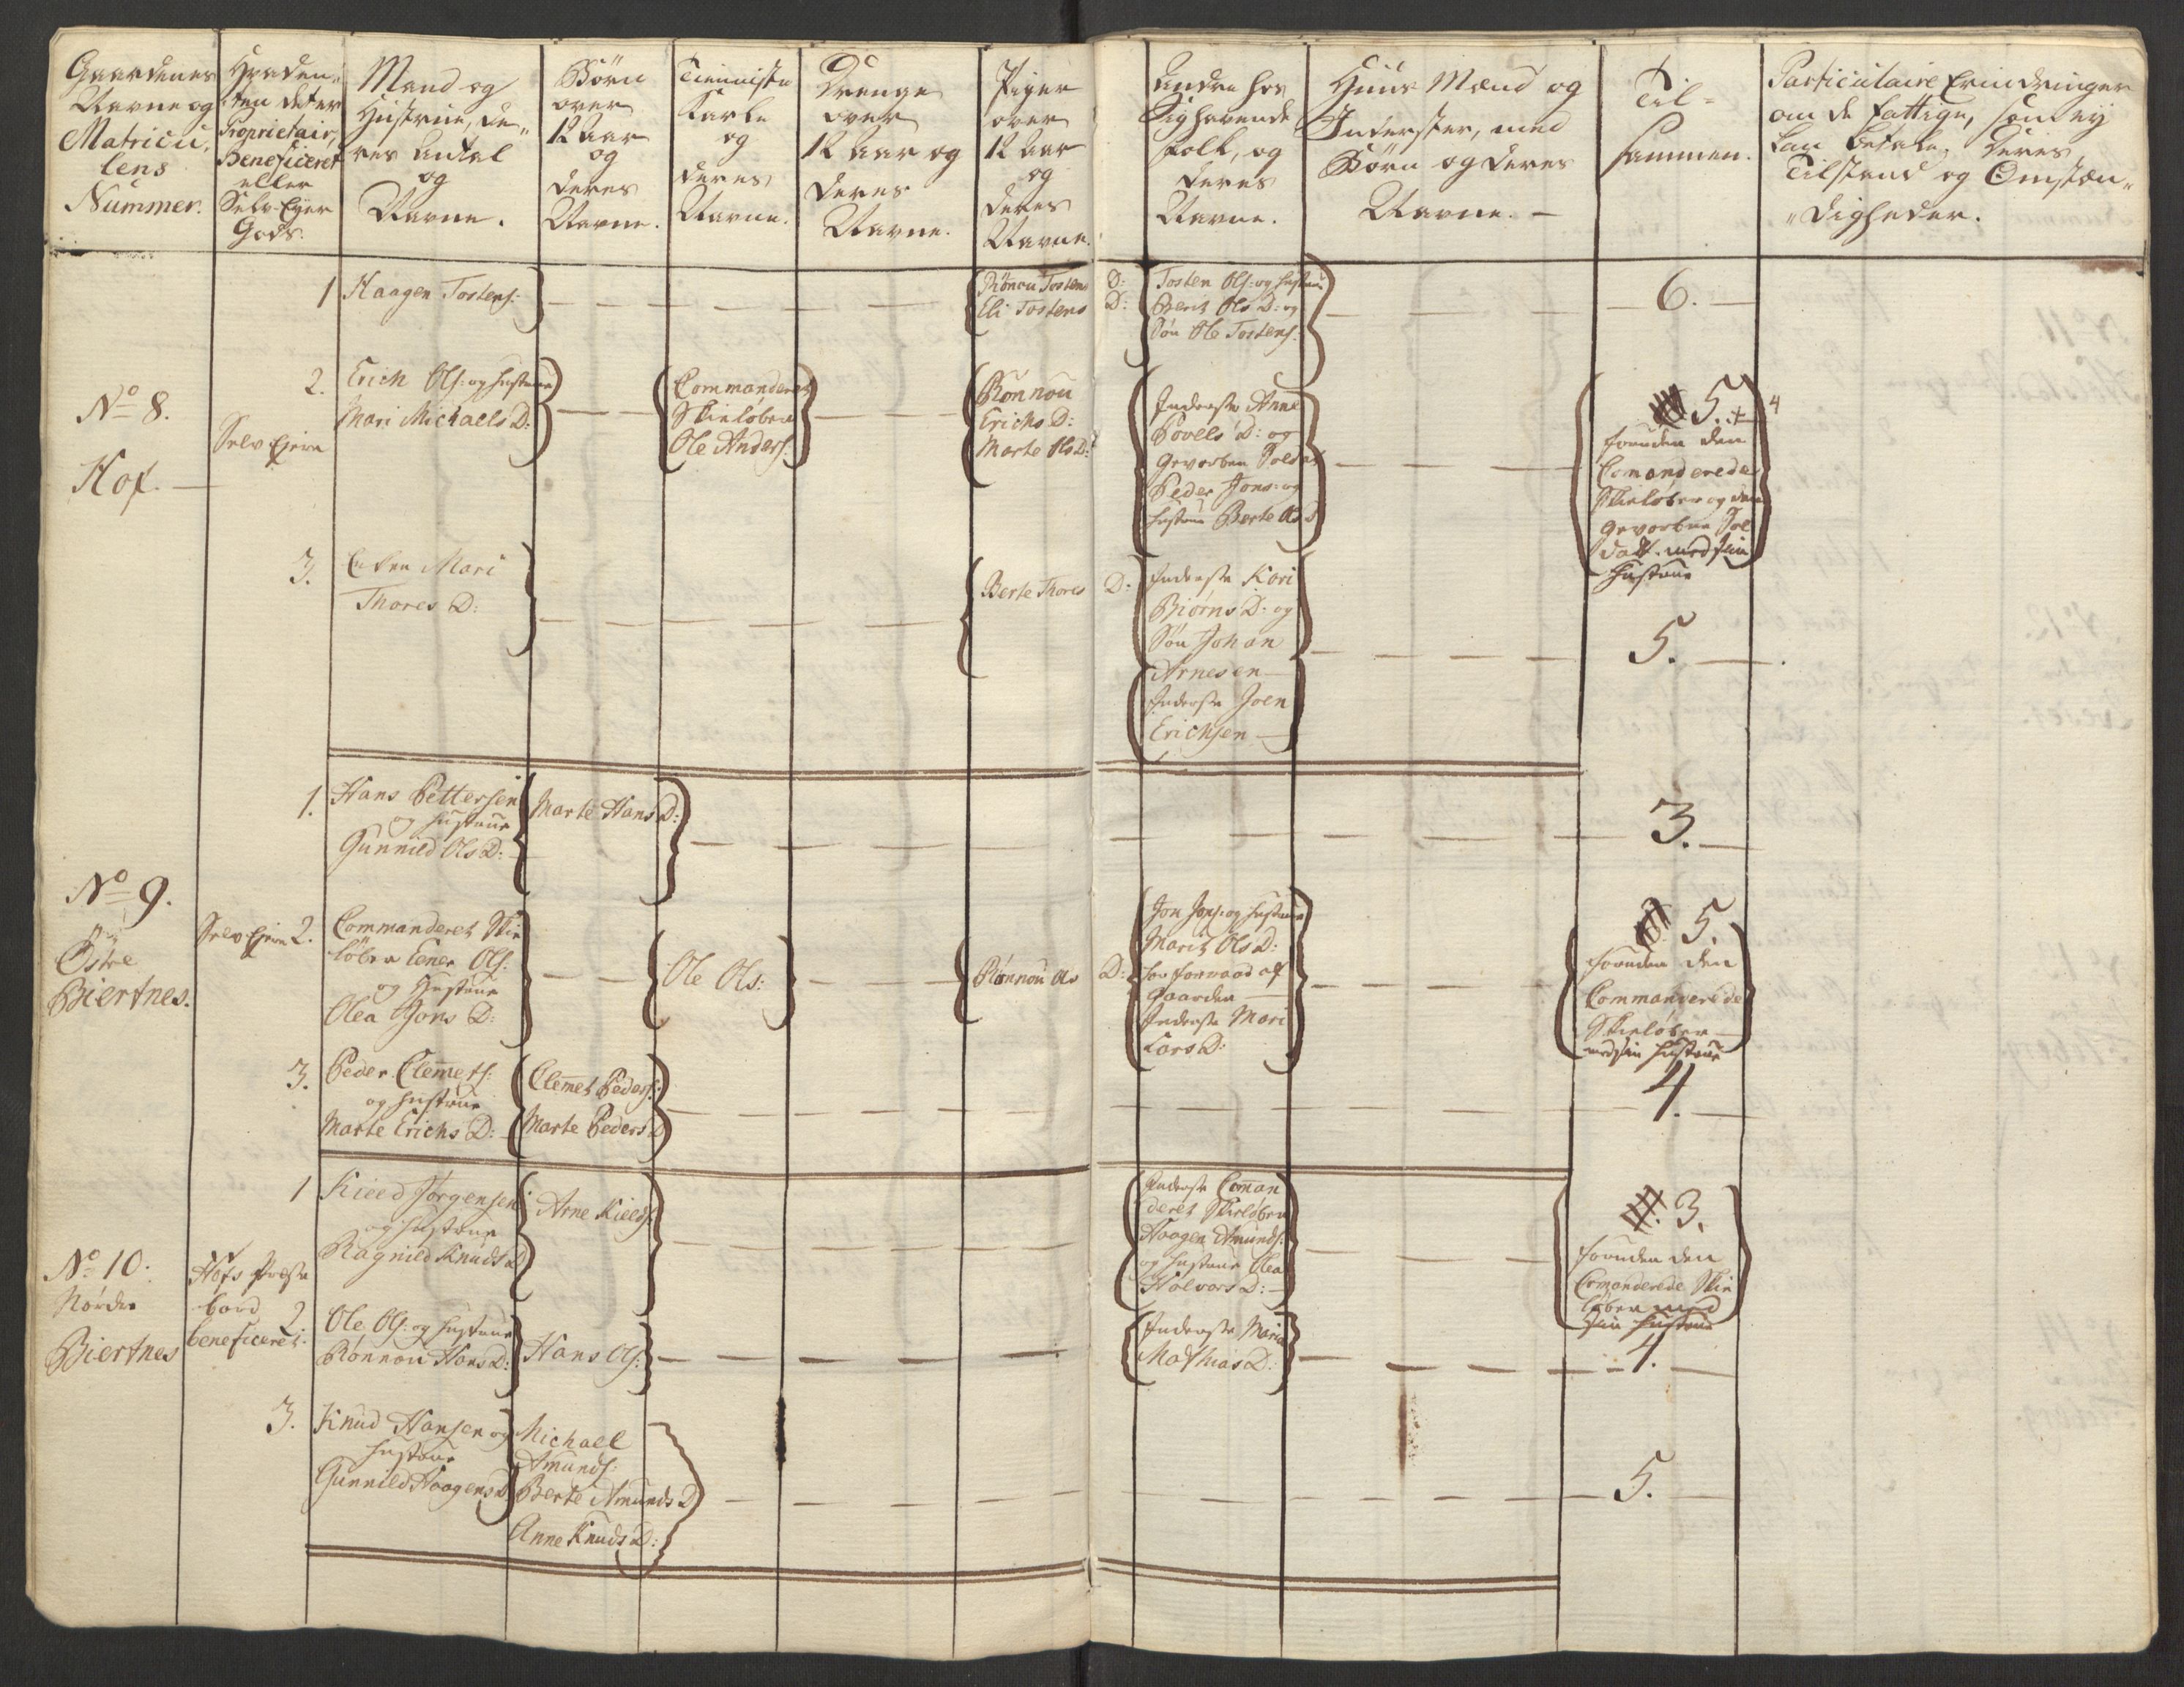 Gaardenes
Navne og
Matricu-
lens
Nummer.
Hvad en-
ten det er
Proprietair,
Beneficeret
eller
Selv-Ejer
Gods.
Mand og
Hustrue, De-
res Antal
og
Navne.
Börn
over
12 Aar
og
deres
Navne.
Tienniste
Karle
og
deres
Navne.
Drenge
over
12 Aar og
deres
Navne.
Piger
over
12 Aar
og
deres
Navne.
Andre hos
Sig havende
folk, og
deres
Navne.
Huus Mænd og
Inderster, med
Börn og deres
Navne.
Til-
sammen.
Particulaire Erindringer
om de fattige, som ey
kan betale, deres
Tilstand og Omstæn-
digheder.
1 Haagen Tostens:
Rönnou Tostens D:
Eli Tostens D:
Tosten Ols: og hustrue
Berit Ols D: og
Sön Ole Tostens:
6.
No 8.
Hof.
Selv Ejere
2. Erich Ols: og hustrue
Mari Michaels D:
Commanderet
Skielöber
Ole Anders:
Rönnou
Erichs D:
Marte Ols D:
Inderste Anne
Povels D: og
gevorben Soldat
Peder Jons: og
hustrue Berte Ols D
5. + 4
foruden den
Comanderede
Skielöber og den
gevorbne Sol
dat med sin
hustrue
3. Enken Mari
Thores D:
Berte Thores D:
Inderste Kari
Biörns D: og
Sön Johan
Arnesen
Inderste Joen
Erichsen
5.
1. Hans Pettersen
og hustrue
Gunnild Ols D:
Marte Hans D:
3.
No 9.
Östre
Biertnes.
Selv Ejere
2. Commanderet Skie
löber Ener Ols:
og Hustrue
Olea Jons D:
Ole Ols:
Rönnou Ols D:
Jon Jons: og hustrue
Marit Ols D:
har forraad af
Gaarden
Inderste Mari
Lars D:
5.
foruden den
Commanderede
Skielöber
med sin hustrue
3. Peder Clemets:
og hustrue
Marte Erichs D:
Clemet Peders:
Marte Peders D
4.
No 10.
Nördre
Biertnes
Hofs Præste
bord
beneficeret.
1 Kield Jörgensen
og hustrue
Ragnild Knuds D
Arne Kields:
Inderste Coman
deret Skielöber
Haagen Amunds:
og hustrue Olea
Halvors D:
3.
foruden den
Comanderede Skie
löber med
sin hustrue
2 Ole Ols: og hustrue
Rönnou Hans D:
Hans Ols:
Inderste Maria
Mathias D:
4.
3. Knud Hansen og
hustrue
Gunnild Haagens D
Michael
Amunds:
Berte Amunds D
Anne Knuds D:
5.